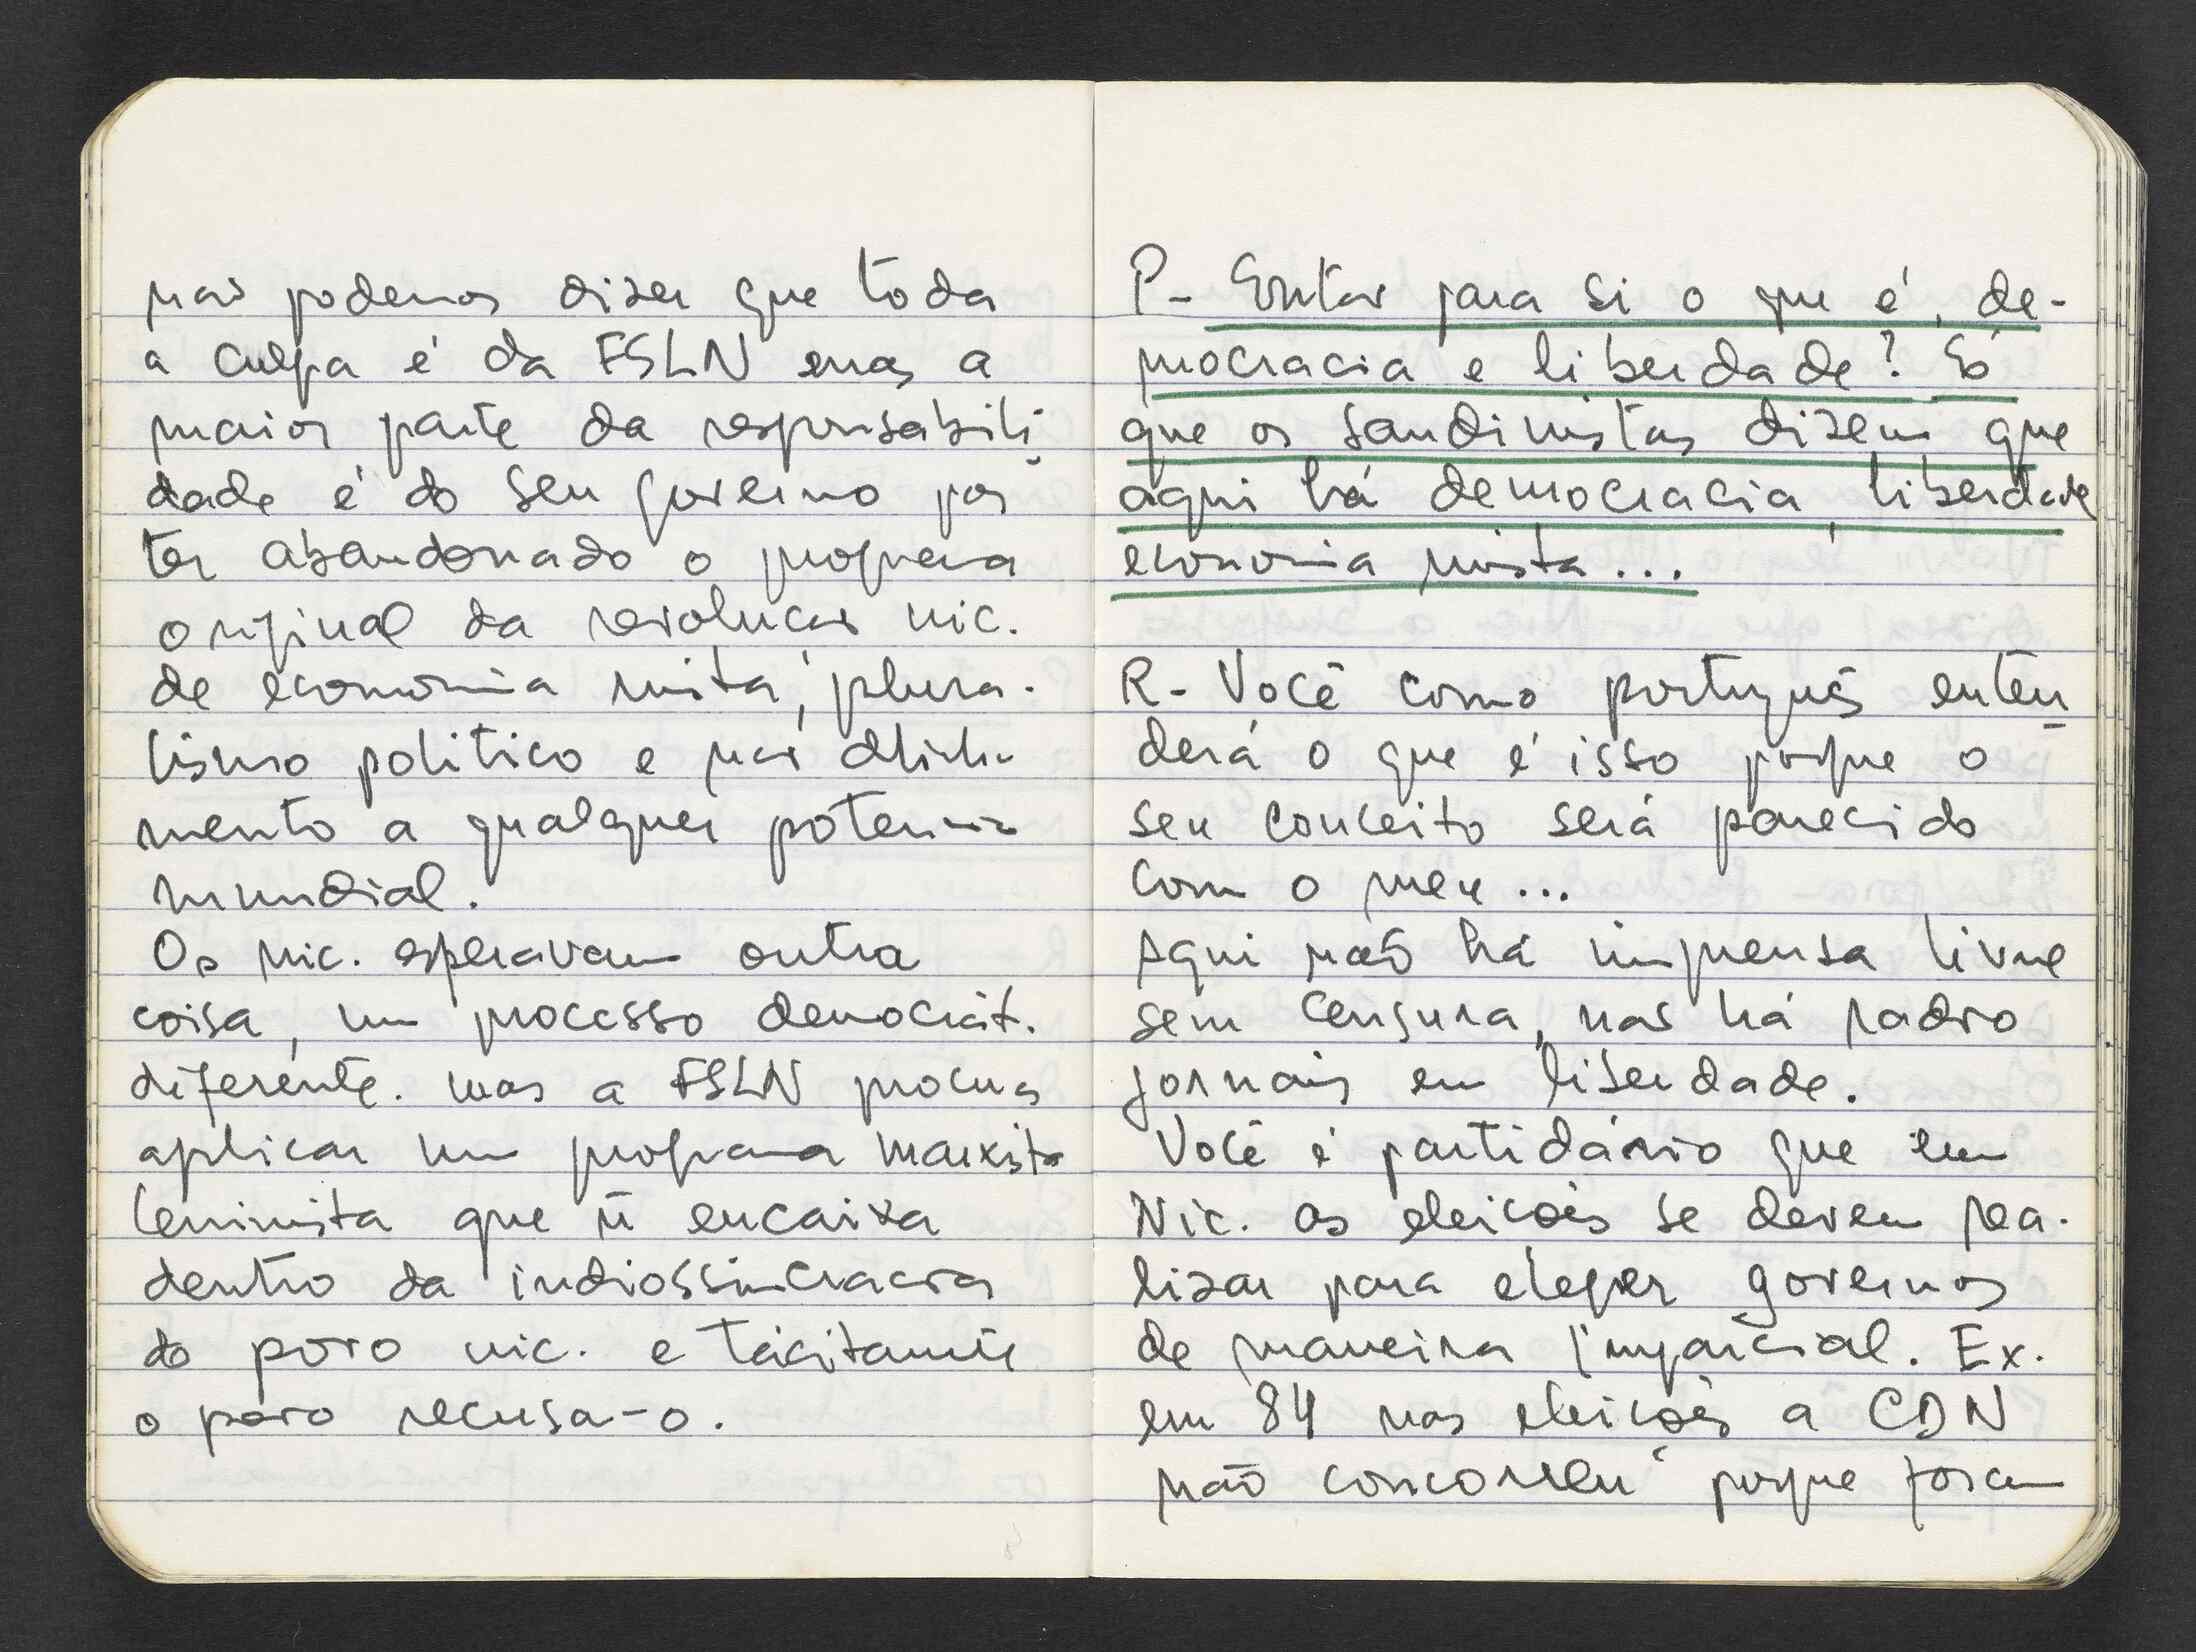 não podemos dizer que toda
a culpa é da FSLN mas a
maior parte da responsabili
dade é do seu governo por
ter abandonado o programa
original da revolucão nic.
de economia mista, plura-
lismo politico e não alinha
mento a qualquer potencia
mundial.
Os nic. esperavam outra
coisa, um processo democrát.
diferente. mas a FSLN procura
aplicar um programa marxista
leninista que ñ encaixa
dentro da indiossincracia
do povo nic. e tácitamte
o povo recusa-o.
P- Então para si o que é, de-
mocracia e liberdade? Só
que os sandinistas dizem que
aqui há democracia, liberdade
economia mista...
R- Você como português enten
derá o que é isso porque o
seu conceito será parecido
com o meu...
Aqui não há imprensa livre
sem censura, nas há radio
jornais em liberdade.
Você é partidário que em
Nic. as eleicões se devem rea-
lizar para eleger governos
de maneira imparcial. Ex.
em 84 nas eleicões a CDN
não concorreu porque foram